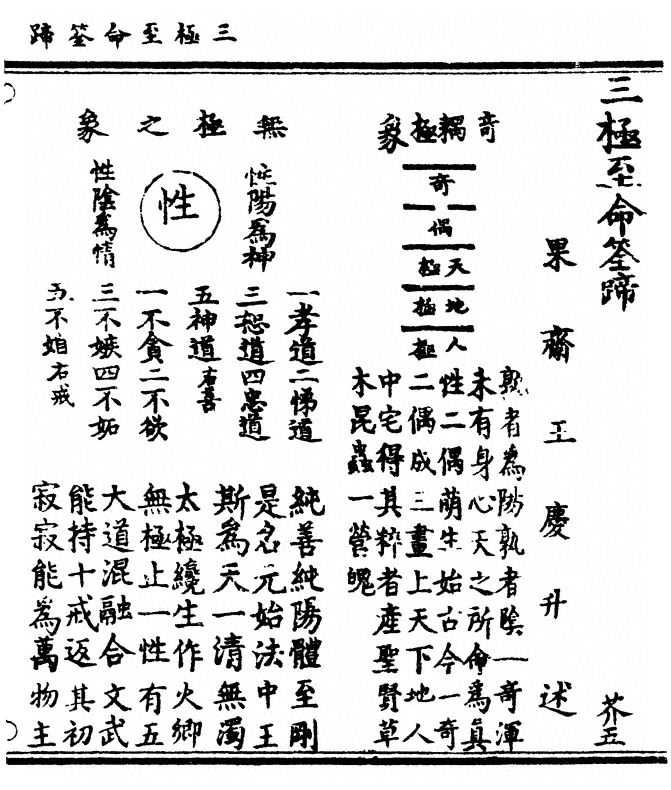 三極至命筌蹄
三極至命筌蹄
果齋王慶升述
芥五
奇耦極象
奇
偶
天極
地極
人極
熟者為陽孰者陰一奇渾
未有身心天之所命為真
性二偶萌生始古今一奇
二偶成三畫上天下地人
中宅得其粹者產聖賢草
木昆蟲一營魄
無極之象
性陽為神
性
性陰為情
一孝道二悌道
三恕道四忠道
五神道右善
一不貪二不欲
三不嫉四不妬
五不右戒
純善純陽體至剛
是名元始法中王
斯為天一清無濁
太極纔生作火鄉
無極止一性有五
大道混融合文武
能持十戒返其初
寂寂能為萬物主